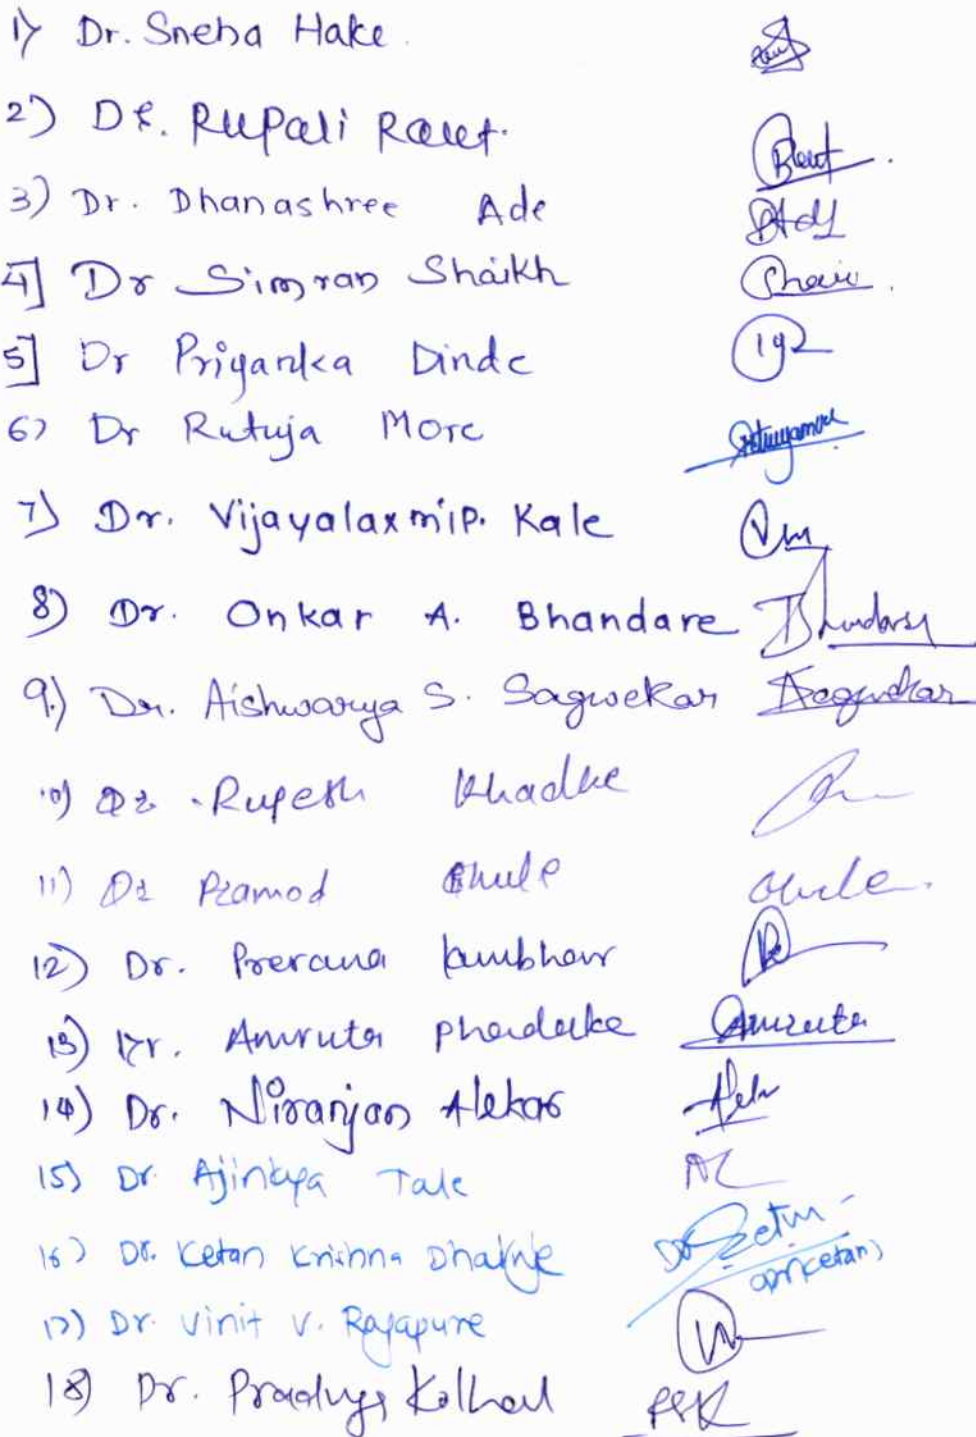 1) Dr. Sneha Hake.
2) Dr. Rupali Raut. Raut.
3) Dr. Dhanashree Ade
4] Dr Simran Shaikh
5] Dr Priyanka Dinde
6) Dr Rutuja More
7) Dr. Vijayalaxmi P. Kale
8) Dr. Onkar A. Bhandare
9.) Dr. Aishwarya S. Sagwekar
10) Dr. Rupesh Khadke
11) Dr Pramod Ghule
12) Dr. Prerana Kumbhar
13) Dr. Amruta Phadake Amruta
14) Dr. Niranjan Alekar
15) Dr. Ajinkya Tale
16) Dr. Ketan Krishna Dhainje
17) Dr. Vinit V. Rajapure
18) Dr. PSK